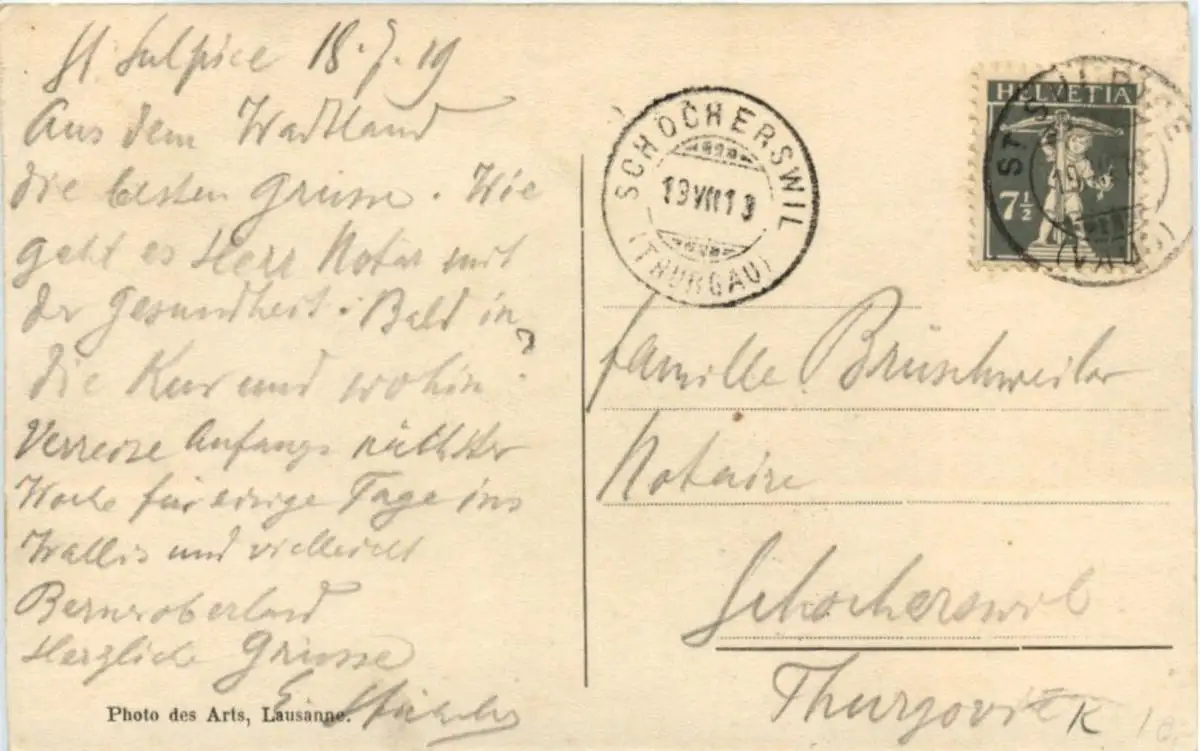 St. Sulpice 18.7.19
Aus dem Wadtland
die besten Grüsse. Wie
geht es Herr Notar mit
der Gesundheit. Bald in
die Kur und wohin?
Verreise Anfangs nächster
Woche für einige Tage ins
Wallis und vielleicht
Berneroberland
Herzliche Grüsse
E.
Photo des Arts, Lausanne.
SCHOCHERSWIL
19 VII 19
(THURGAU)
HELVETIA
7½
ST SULPICE
(VAUD)
Famille Brüschweiler
Notaire
Schocherswil
Thurgovie